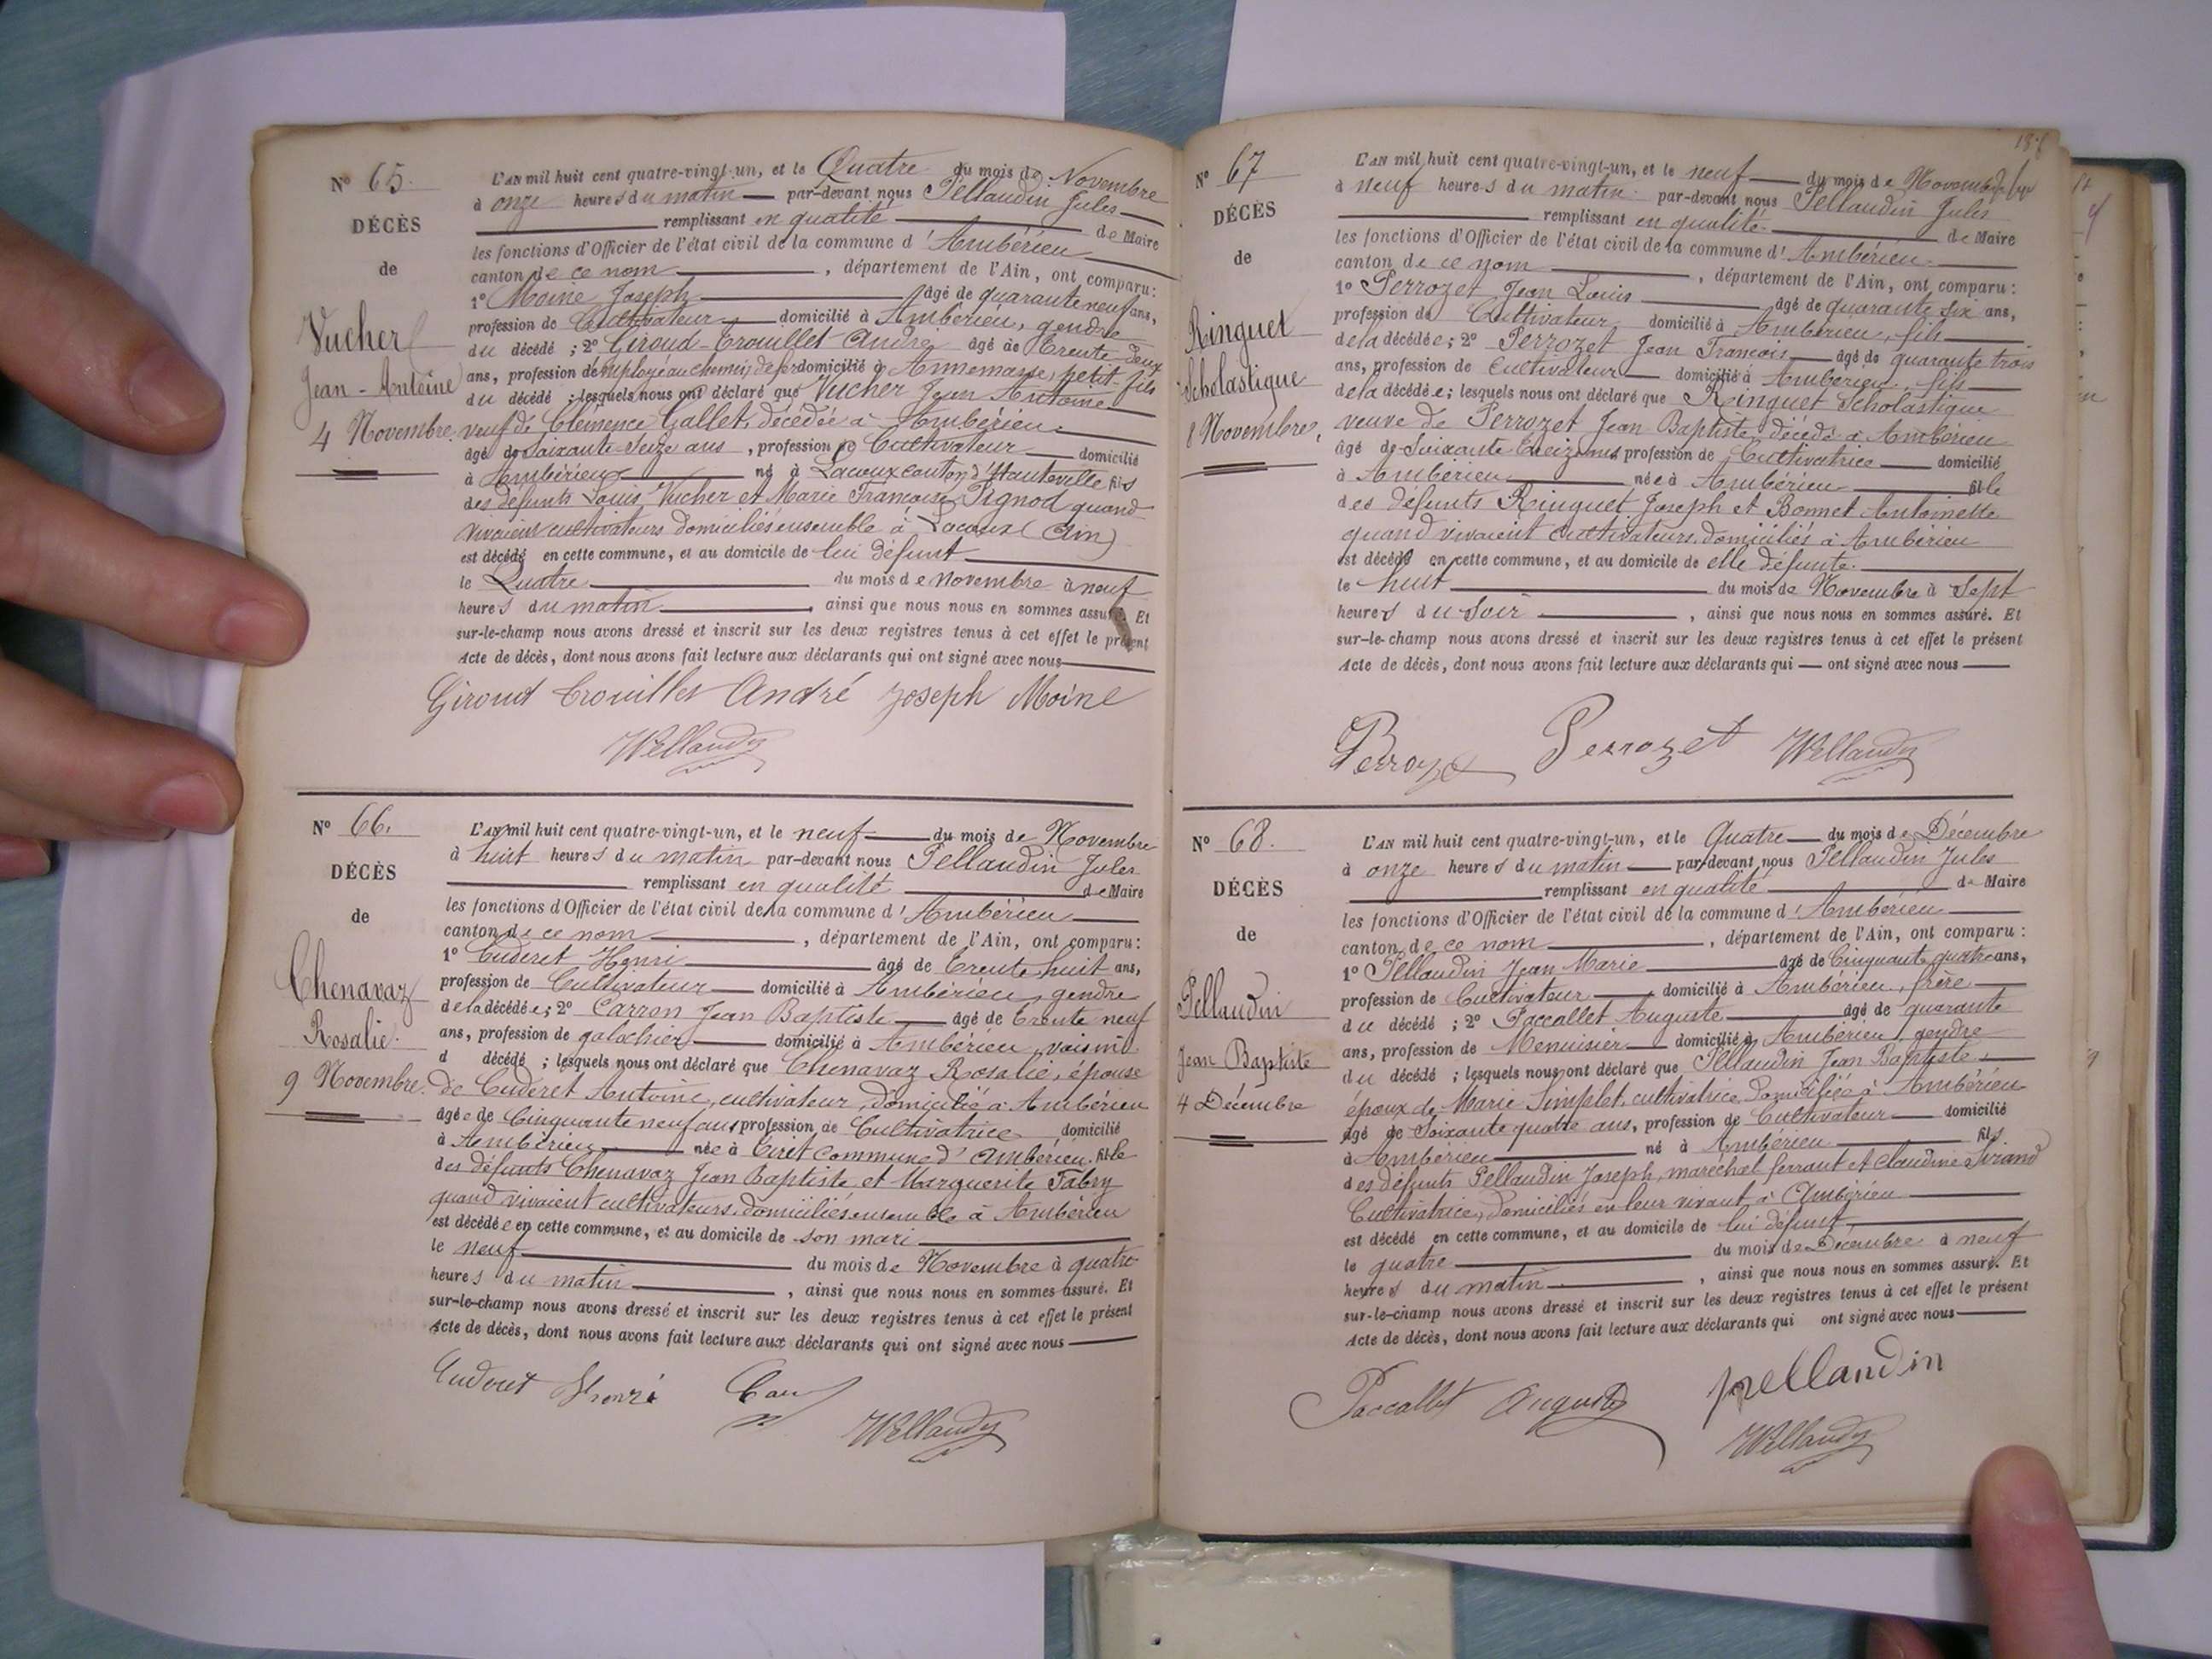 N° 65.
DÉCÈS
de
Vucher
Jean-Antoine
4 Novembre
L'AN mil huit cent quatre-vingt-un, et le Quatre du mois de Novembre
à onze heures du matin par-devant nous Pellaudin Jules
remplissant en qualité de Maire
les fonctions d'Officier de l'état civil de la commune d'Ambérieu
canton de ce nom, département de l'Ain, ont comparu:
1° Moine Joseph âgé de quarante neuf ans,
profession de Cultivateur domicilié à Ambérieu, gendre
du décédé; 2° Giroud-Trouillet André âgé de Trente deux
ans, profession d'employé au chemin de fer domicilié à Annemasse, petit-fils
du décédé; lesquels nous ont déclaré que Vucher Jean Antoine
veuf de Clémence Gallet, décédée à Ambérieu
âgé de Soixante Seize ans, profession de Cultivateur domicilié
à Ambérieu né à Lacoux canton d'Hauteville fils
des défunts Louis Vucher et Marie Françoise Pignod quand
vivaient cultivateurs domiciliés ensemble à Lacoux (Ain)
est décédé en cette commune, et au domicile de lui défunt
le Quatre du mois de Novembre à neuf
heures du matin, ainsi que nous nous en sommes assuré. Et
sur-le-champ nous avons dressé et inscrit sur les deux registres tenus à cet effet le présent
Acte de décès, dont nous avons fait lecture aux déclarants qui ont signé avec nous
Giroud Trouillet André Joseph Moine
N° 66.
DÉCÈS
de
Chenavaz
Rosalie
9 Novembre.
L'AN mil huit cent quatre-vingt-un, et le neuf du mois de Novembre
à huit heures du matin par-devant nous Pellaudin Jules
remplissant en qualité de Maire
les fonctions d'Officier de l'état civil de la commune d'Ambérieu
canton de ce nom, département de l'Ain, ont comparu:
1° Cuderet Henri âgé de Trente huit ans,
profession de Cultivateur domicilié à Ambérieu, gendre
de la décédée; 2° Carron Jean Baptiste âgé de Trente neuf
ans, profession de galochier domicilié à Ambérieu, voisin
d décédé; lesquels nous ont déclaré que Chenavaz Rosalie, épouse
de Cuderet Antoine, cultivateur, domicilié à Ambérieu
âgée de Cinquante neuf ans profession de Cultivatrice domicilié
à Ambérieu née à Tiret Commune d'Ambérieu fille
des défunts Chenavaz Jean Baptiste et Marguerite Fabry
quand vivaient cultivateurs, domiciliés ensemble à Ambérieu
est décédée en cette commune, et au domicile de son mari
le neuf du mois de Novembre à quatre
heures du matin, ainsi que nous nous en sommes assuré. Et
sur-le-champ nous avons dressé et inscrit sur les deux registres tenus à cet effet le présent
Acte de décès, dont nous avons fait lecture aux déclarants qui ont signé avec nous
Cuderet Henri
N° 67
DÉCÈS
de
Ringuet
Scholastique
8 Novembre
L'AN mil huit cent quatre-vingt-un, et le neuf du mois de Novembre
à neuf heures du matin par-devant nous Pellaudin Jules
remplissant en qualité de Maire
les fonctions d'Officier de l'état civil de la commune d'Ambérieu
canton de ce nom, département de l'Ain, ont comparu:
1° Perrozet Jean Louis âgé de quarante six ans,
profession de Cultivateur domicilié à Ambérieu, fils
de la décédée; 2° Perrozet Jean François âgé de quarante trois
ans, profession de Cultivateur domicilié à Ambérieu, fils
de la décédée; lesquels nous ont déclaré que Ringuet Scholastique
veuve de Perrozet Jean Baptiste décédé à Ambérieu
âgé de Soixante Treize ans profession de Cultivatrice domicilié
à Ambérieu née à Ambérieu fille
des défunts Ringuet Joseph et Bonnet Antoinette
quand vivaient cultivateurs, domiciliés à Ambérieu
est décédé en cette commune, et au domicile de elle défunte.
le huit du mois de Novembre à Sept
heures du Soir, ainsi que nous nous en sommes assuré. Et
sur-le-champ nous avons dressé et inscrit sur les deux registres tenus à cet effet le présent
Acte de décès, dont nous avons fait lecture aux déclarants qui ont signé avec nous
Perrozet Perrozet
N° 68.
DÉCÈS
de
Pellaudin
Jean Baptiste
4 Décembre
L'AN mil huit cent quatre-vingt-un, et le Quatre du mois de Décembre
à onze heures du matin par-devant nous Pellaudin Jules
remplissant en qualité de Maire
les fonctions d'Officier de l'état civil de la commune d'Ambérieu
canton de ce nom, département de l'Ain, ont comparu:
1° Pellaudin Jean Marie âgé de Cinquante quatre ans,
profession de Cultivateur domicilié à Ambérieu, frère
du décédé; 2° Paccallet Auguste âgé de quarante
ans, profession de Menuisier domicilié à Ambérieu, gendre
du décédé; lesquels nous ont déclaré que Pellaudin Jean Baptiste,
époux de Marie Simplet, cultivatrice, domiciliée à Ambérieu
âgé de Soixante quatre ans, profession de Cultivateur domicilié
à Ambérieu né à Ambérieu fils
des défunts Pellaudin Joseph, maréchal ferrant et Claudine Sirand
Cultivatrice, domiciliés en leur vivant à Ambérieu
est décédé en cette commune, et au domicile de lui défunt,
le quatre du mois de Décembre à neuf
heures du matin, ainsi que nous nous en sommes assuré. Et
sur-le-champ nous avons dressé et inscrit sur les deux registres tenus à cet effet le présent
Acte de décès, dont nous avons fait lecture aux déclarants qui ont signé avec nous
Paccallet Auguste pellaudin